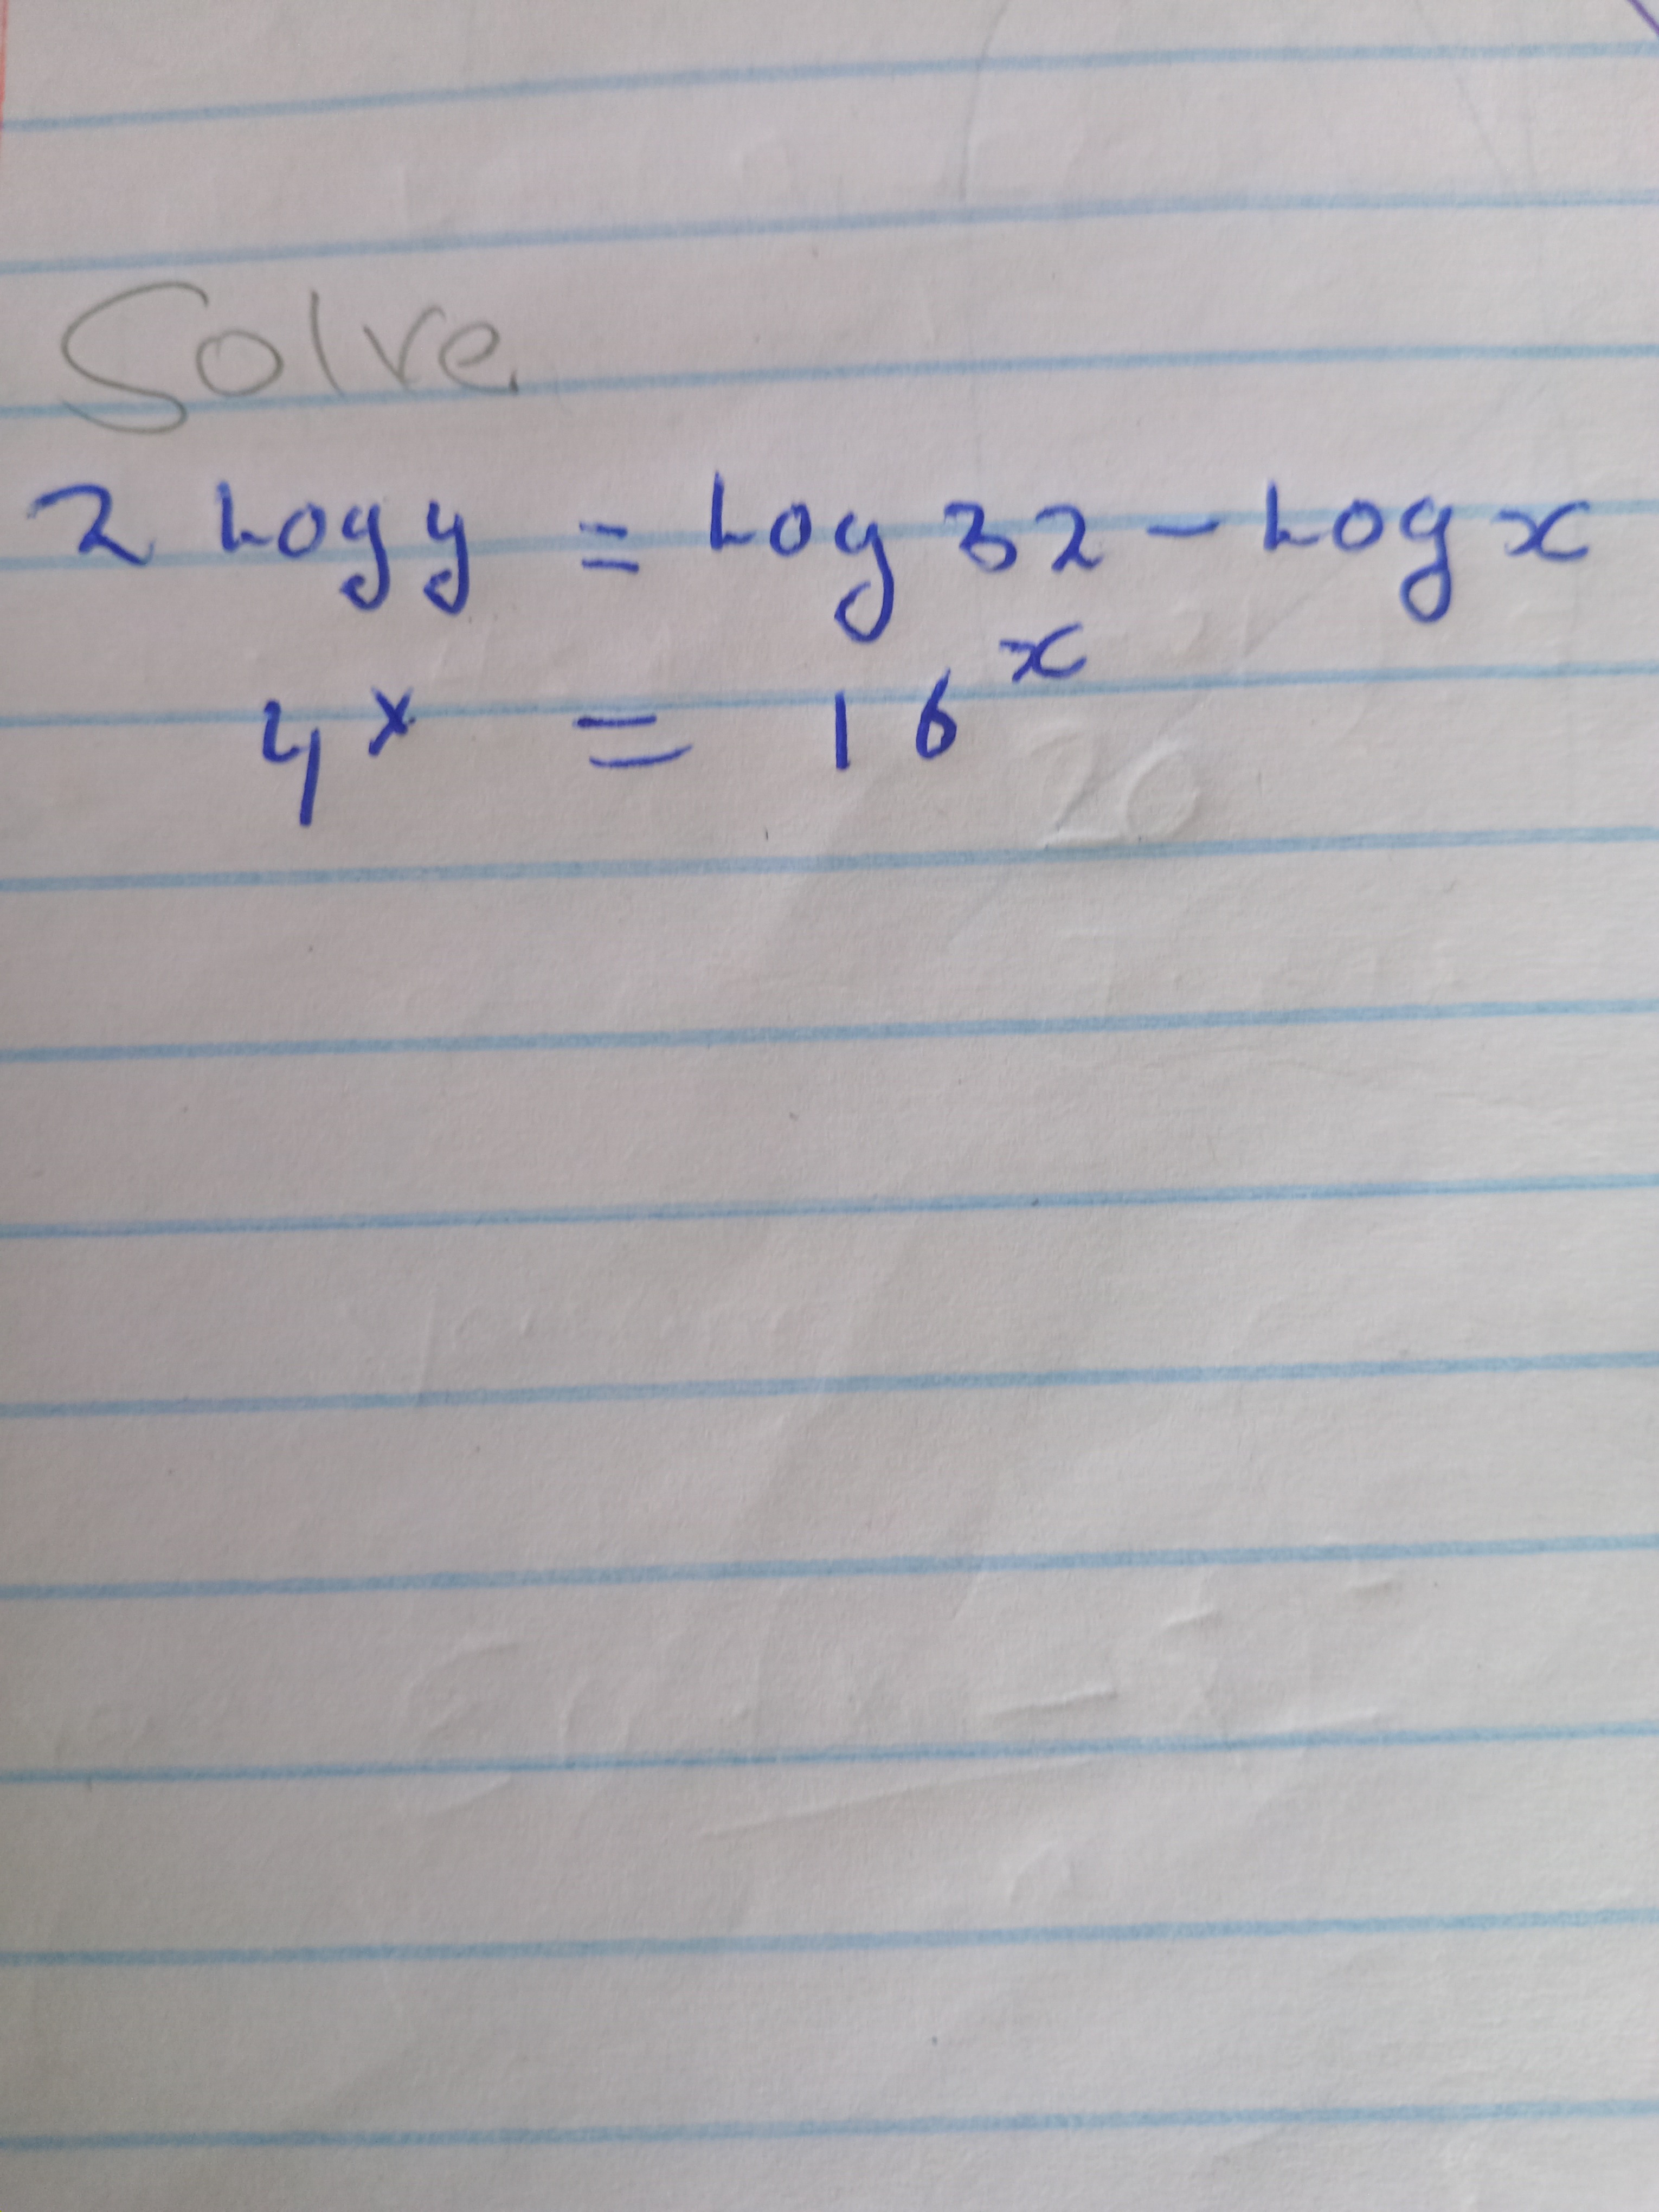 Solve
2 Log y = Log 32 - Log x
4ˣ = 16ˣ
20